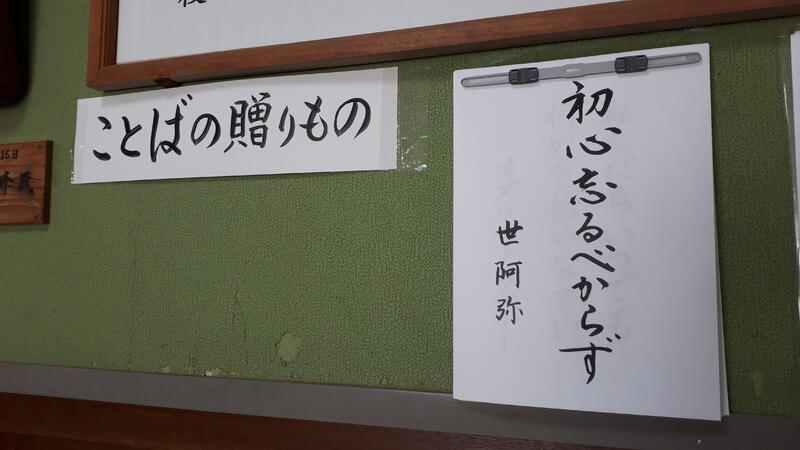 ことばの贈りもの
初心忘るべからず
世阿弥
16日